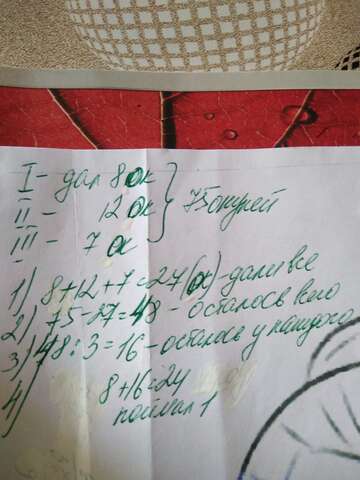 I - дал 8 ок
II - 12 ок } 75 окуней
III - 7 ок
1) 8+12+7=27(ок) - дали все
2) 75-27=48 - осталось всего
3) 48:3=16 - осталось у каждого
4) 8+16=24
поймал 1